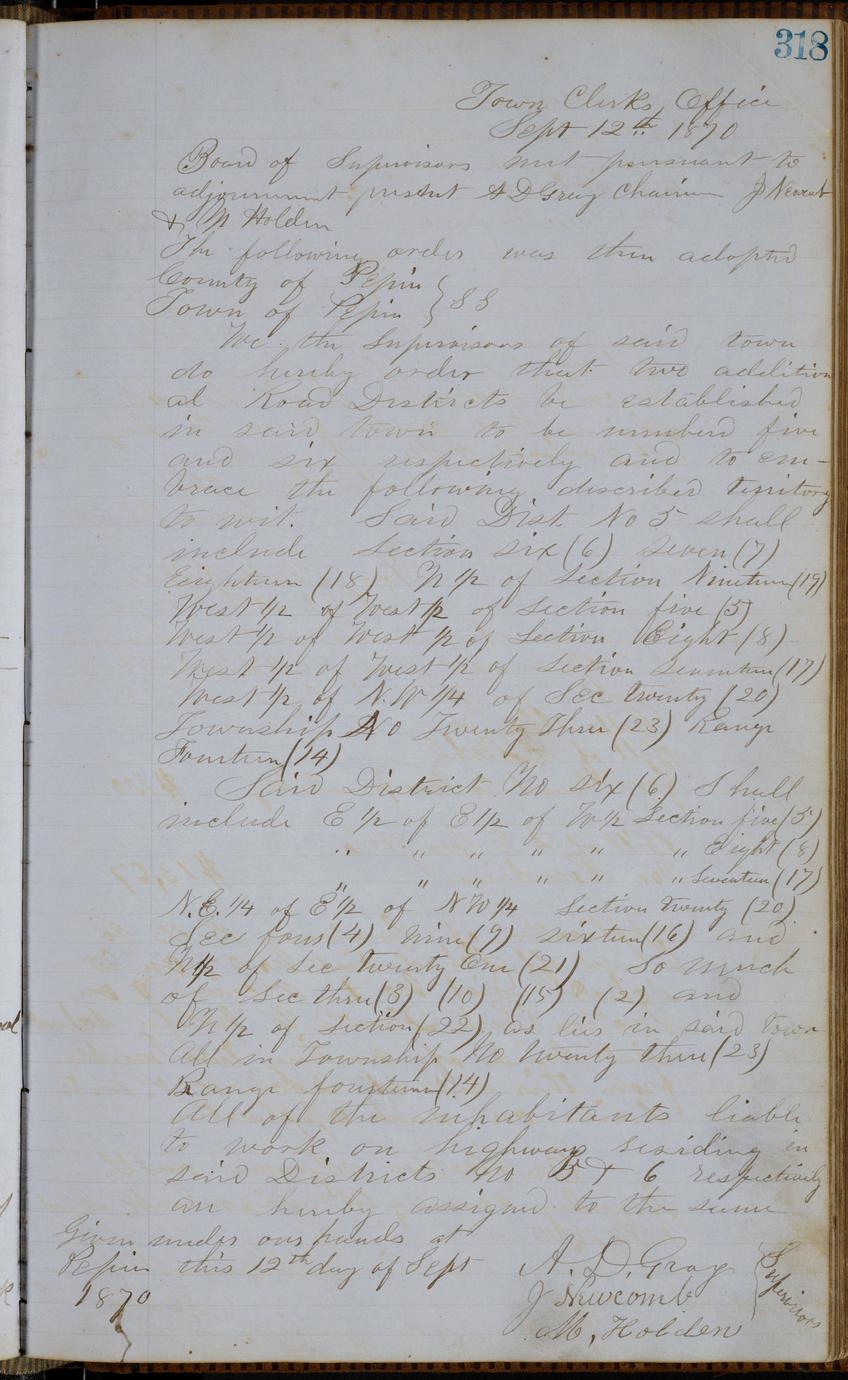 318
Town Clerks Office
Sept 12th 1870
Board of Supervisors met pursuant to
adjournment present A D Gray Chairman J Newcomb
& M Holden
The following order was then adopted
County of Pepin
Town of Pepin } SS
We the Supervisors of said town
do hereby order that two addition
al Road Districts be established
in said town to be numberd five
and six respectively and to em-
brace the following described territory
to wit. Said Dist. No 5 shall
include Section six (6) seven (7)
Eighteen (18) N 1/2 of Section Nineteen (19)
West 1/2 of West 1/2 of Section five (5)
West 1/2 of West 1/2 of Section Eight (8)
West 1/2 of West 1/2 of Section Seventeen (17)
West 1/2 of N.W 1/4 of Sec twenty (20)
Township No Twenty Three (23) Range
Fourteen (14)
Said District No six (6) Shall
include E 1/2 of E 1/2 of W 1/2 Section five (5)
" " " " " " Eight (8)
" " " " " " Seventeen (17)
N.E. 1/4 of E 1/2 of N W 1/4 Section twenty (20)
Sec four (4) nine (9) sixteen (16) and
N 1/2 of Sec twenty One (21) So much
of Sec three (3) (10) (15) (2) and
N 1/2 of Section (22) as lies in said town
All in Township No twenty three (23)
Range fourteen (14)
All of the inhabitants liable
to work on highways residing in
said Districts No 5 & 6 respectively
are hereby assigned to the same
Given under our hands at
Pepin this 12th day of Sept
1870
A. D. Gray
J Newcomb
M. Holden
Supervisors